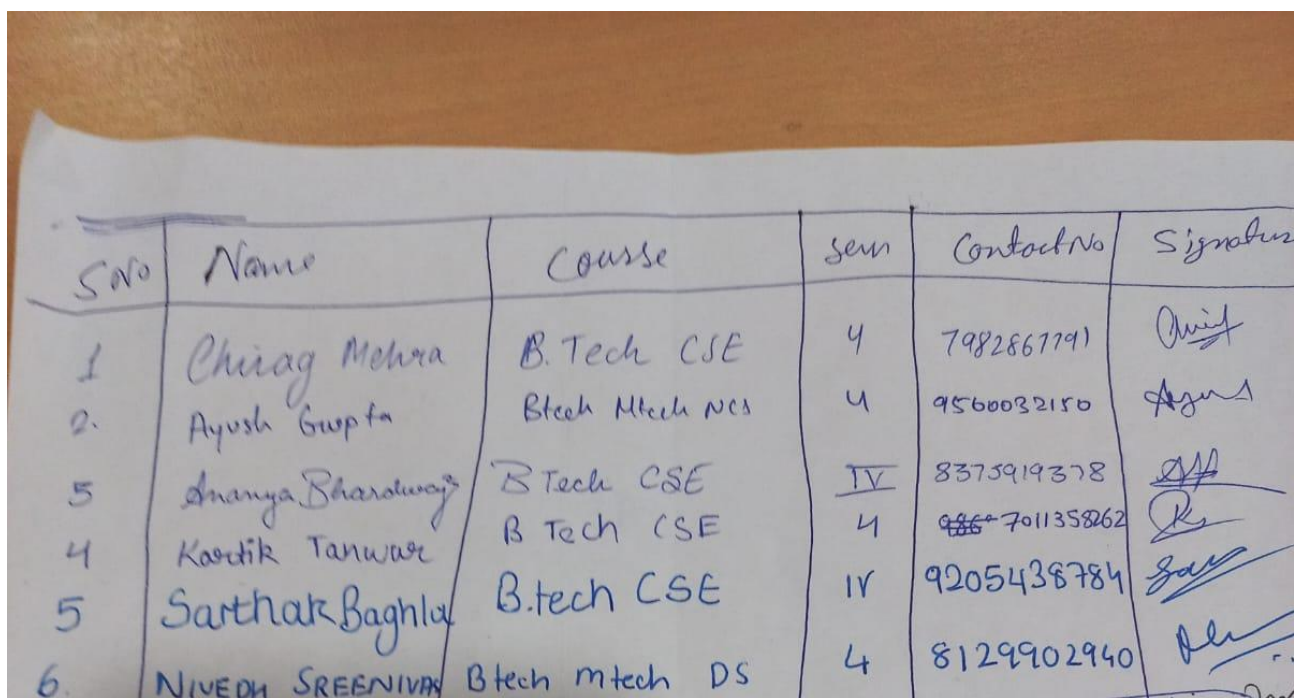 S No Name Course Sem Contact No Signature
1 Chirag Mehra B.Tech CSE 4 7982867791
2. Ayush Gupta Btech Mtech NCS 4 9560032150
5 Ananya Bhardwaj B Tech CSE IV 8375919378
4 Kartik Tanwar B Tech CSE 4 7011358262
5 Sarthak Baghla B.tech CSE IV 9205438784
6. NIVEDH SREENIVAS Btech mtech DS 4 8129902940